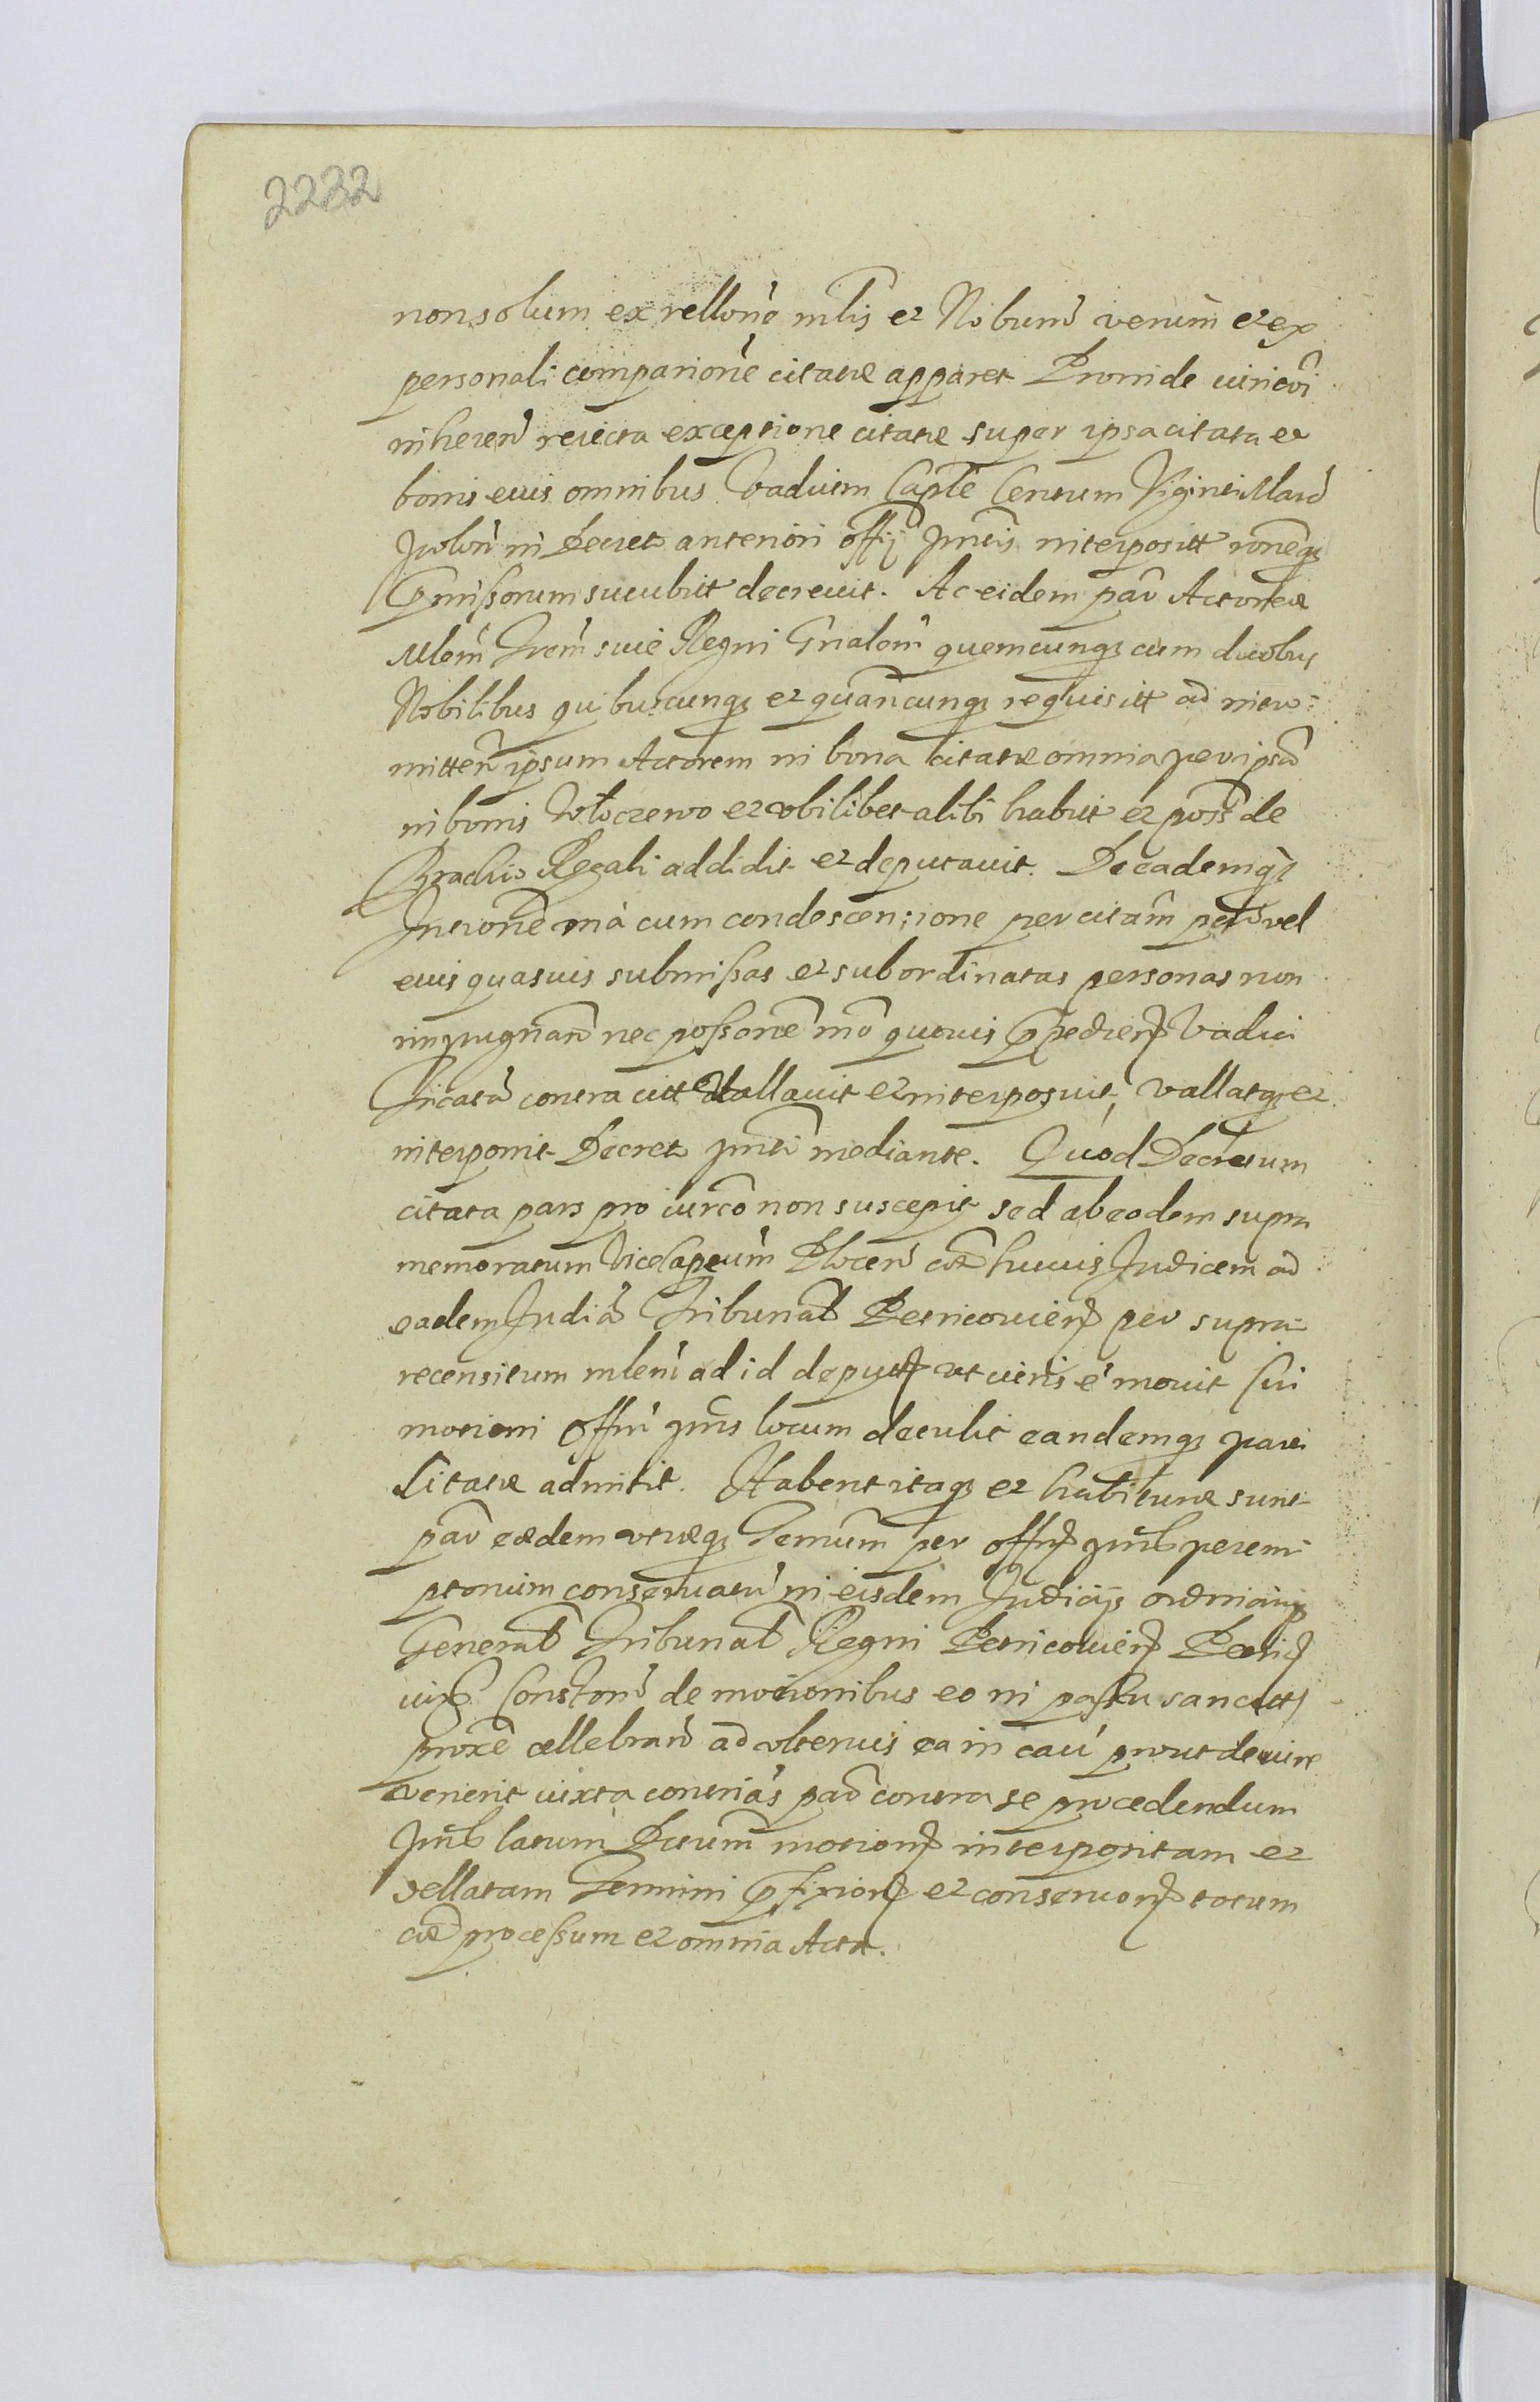 2232
non solum ex rellone mlis et Nobium verum et ex
personali comparione citatæ apparet Proinde
inheren reiecta exceptione citatæ super ipsa citata et
bonis eius omnibus Vadium Caple Centum Viginti Marc
Polon in Decret anteriori offy pntis interposit ronėq
pmißorum sucubuit decrevit. Ac eidem par Actoreæ
Mlem Grem sive Regni Gnalem quemcunq cum duobus
Nobilibus quibuscunq et quancunq requisitt ad intro-
mitten ipsum Actorem in bona citatæ omnia per ipsa
in bonis Włoczewo et vbilibet alibi habit et poss de
Brachio Regali addidit et deputavit. De eademq
Introne mà cum condescensione per citam par vel
eius quasuis submißas et subordinatas personas non
impugnan nec poßone mo quouis pedien Vadia
Tricata contra citt Vallauit et interposuit, vallatq et
interponit Decret pnti mediante. Quod Decretum
citata pars pro iurco non suscepit sed ab eodem supra
memoratum ViceCapeum Plocen huius Judicem ad
eadem Judia Tribunal Petricovien per supra-
recensitum mlem ad id deputt vt movit Cui
motioni Offm pns locum detulit eandemq parti
Citatæ admisit. Habent itaq et habituræ sunt
par eædem vtræq Termum per offm pns perem-
ptorium conservatu in eisdem Judicijs ordinarijs
General Tribunal Regni Petricovien
iux Conston de motionibus eo in paßu sancitt
proxe cellebran ad vlterius ea in cau prout de iure
venerit iuxta contrias par contra se procedendum
Pns latum Dctum motion interpositam et
vellatam Termini pfixion et conservon totum
processum et omnia Acta.